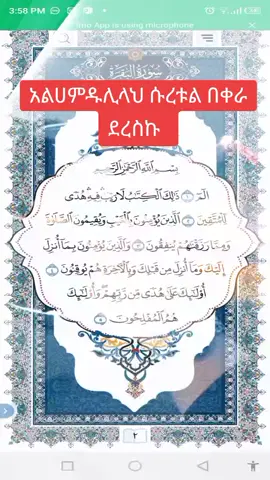 3:58 PM
Zoo App is using microphone
سورة البقرة
አልሀምዱሊላህ ሱረቱል በቀራ
ደረስኩ
بِسْمِ اللَّهِ الرَّحْمَٰنِ الرَّحِيمِ
الٓمٓ ۝١ ذَٰلِكَ الْكِتَٰبُ لَا رَيْبَ ۛ فِيهِ ۛ هُدًى
لِّلْمُتَّقِينَ ۝٢ الَّذِينَ يُؤْمِنُونَ بِالْغَيْبِ وَيُقِيمُونَ الصَّلَوٰةَ
وَمِمَّا رَزَقْنَٰهُمْ يُنفِقُونَ ۝٣ وَالَّذِينَ يُؤْمِنُونَ بِمَآ أُنزِلَ
إِلَيْكَ وَمَآ أُنزِلَ مِن قَبْلِكَ وَبِالْءَاخِرَةِ هُمْ يُوقِنُونَ ۝٤
أُو۟لَٰٓئِكَ عَلَىٰ هُدًى مِّن رَّبِّهِمْ ۖ وَأُو۟لَٰٓئِكَ
هُمُ الْمُفْلِحُونَ ۝٥
٢